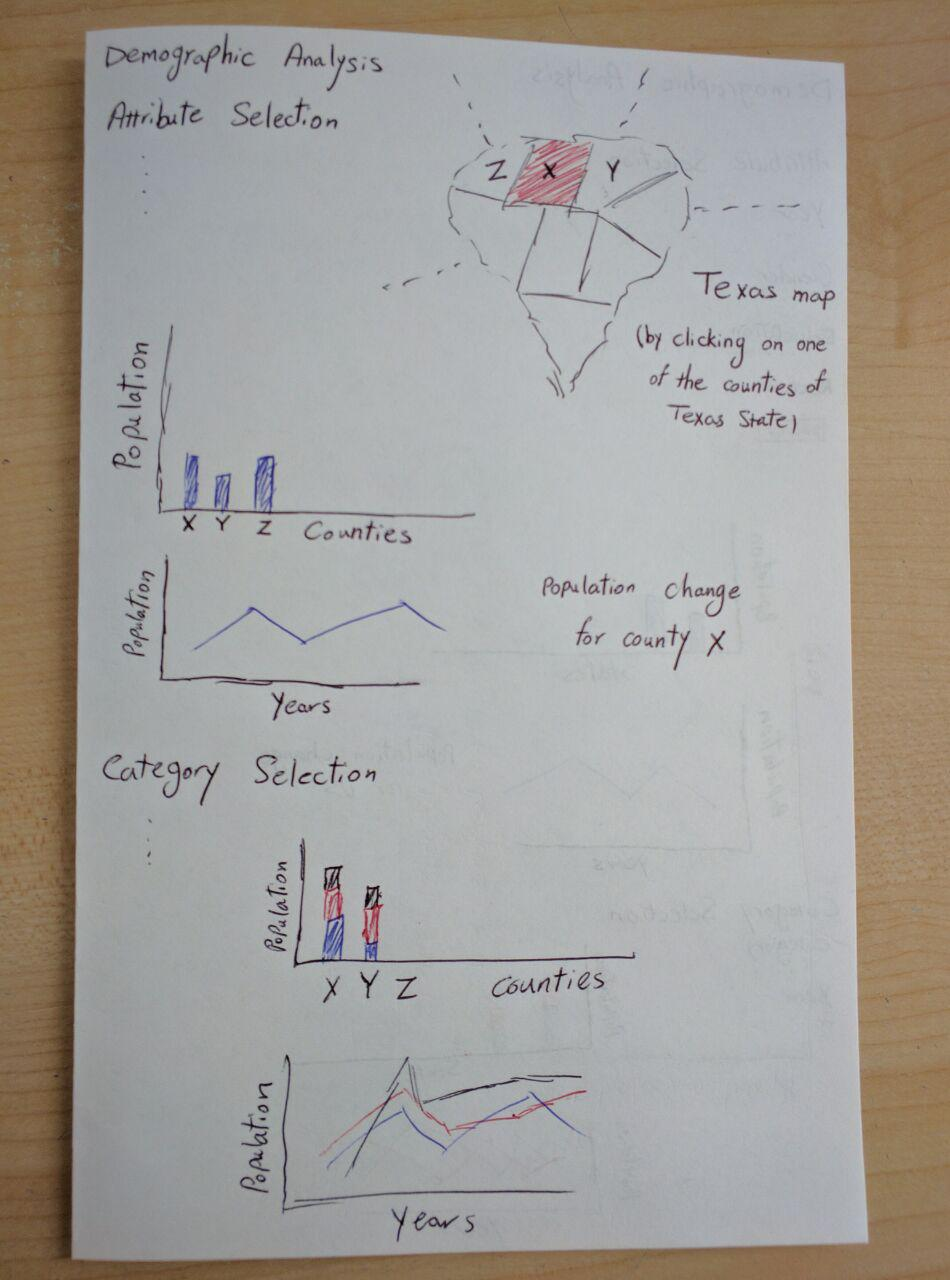 Demographic Analysis
Attribute Selection
Z X Y
Texas map
(by clicking on one
of the counties of
Texas State)
Population
X Y Z Counties
Population
Years
Population change
for county X
Category Selection
Population
X Y Z Counties
Population
Years